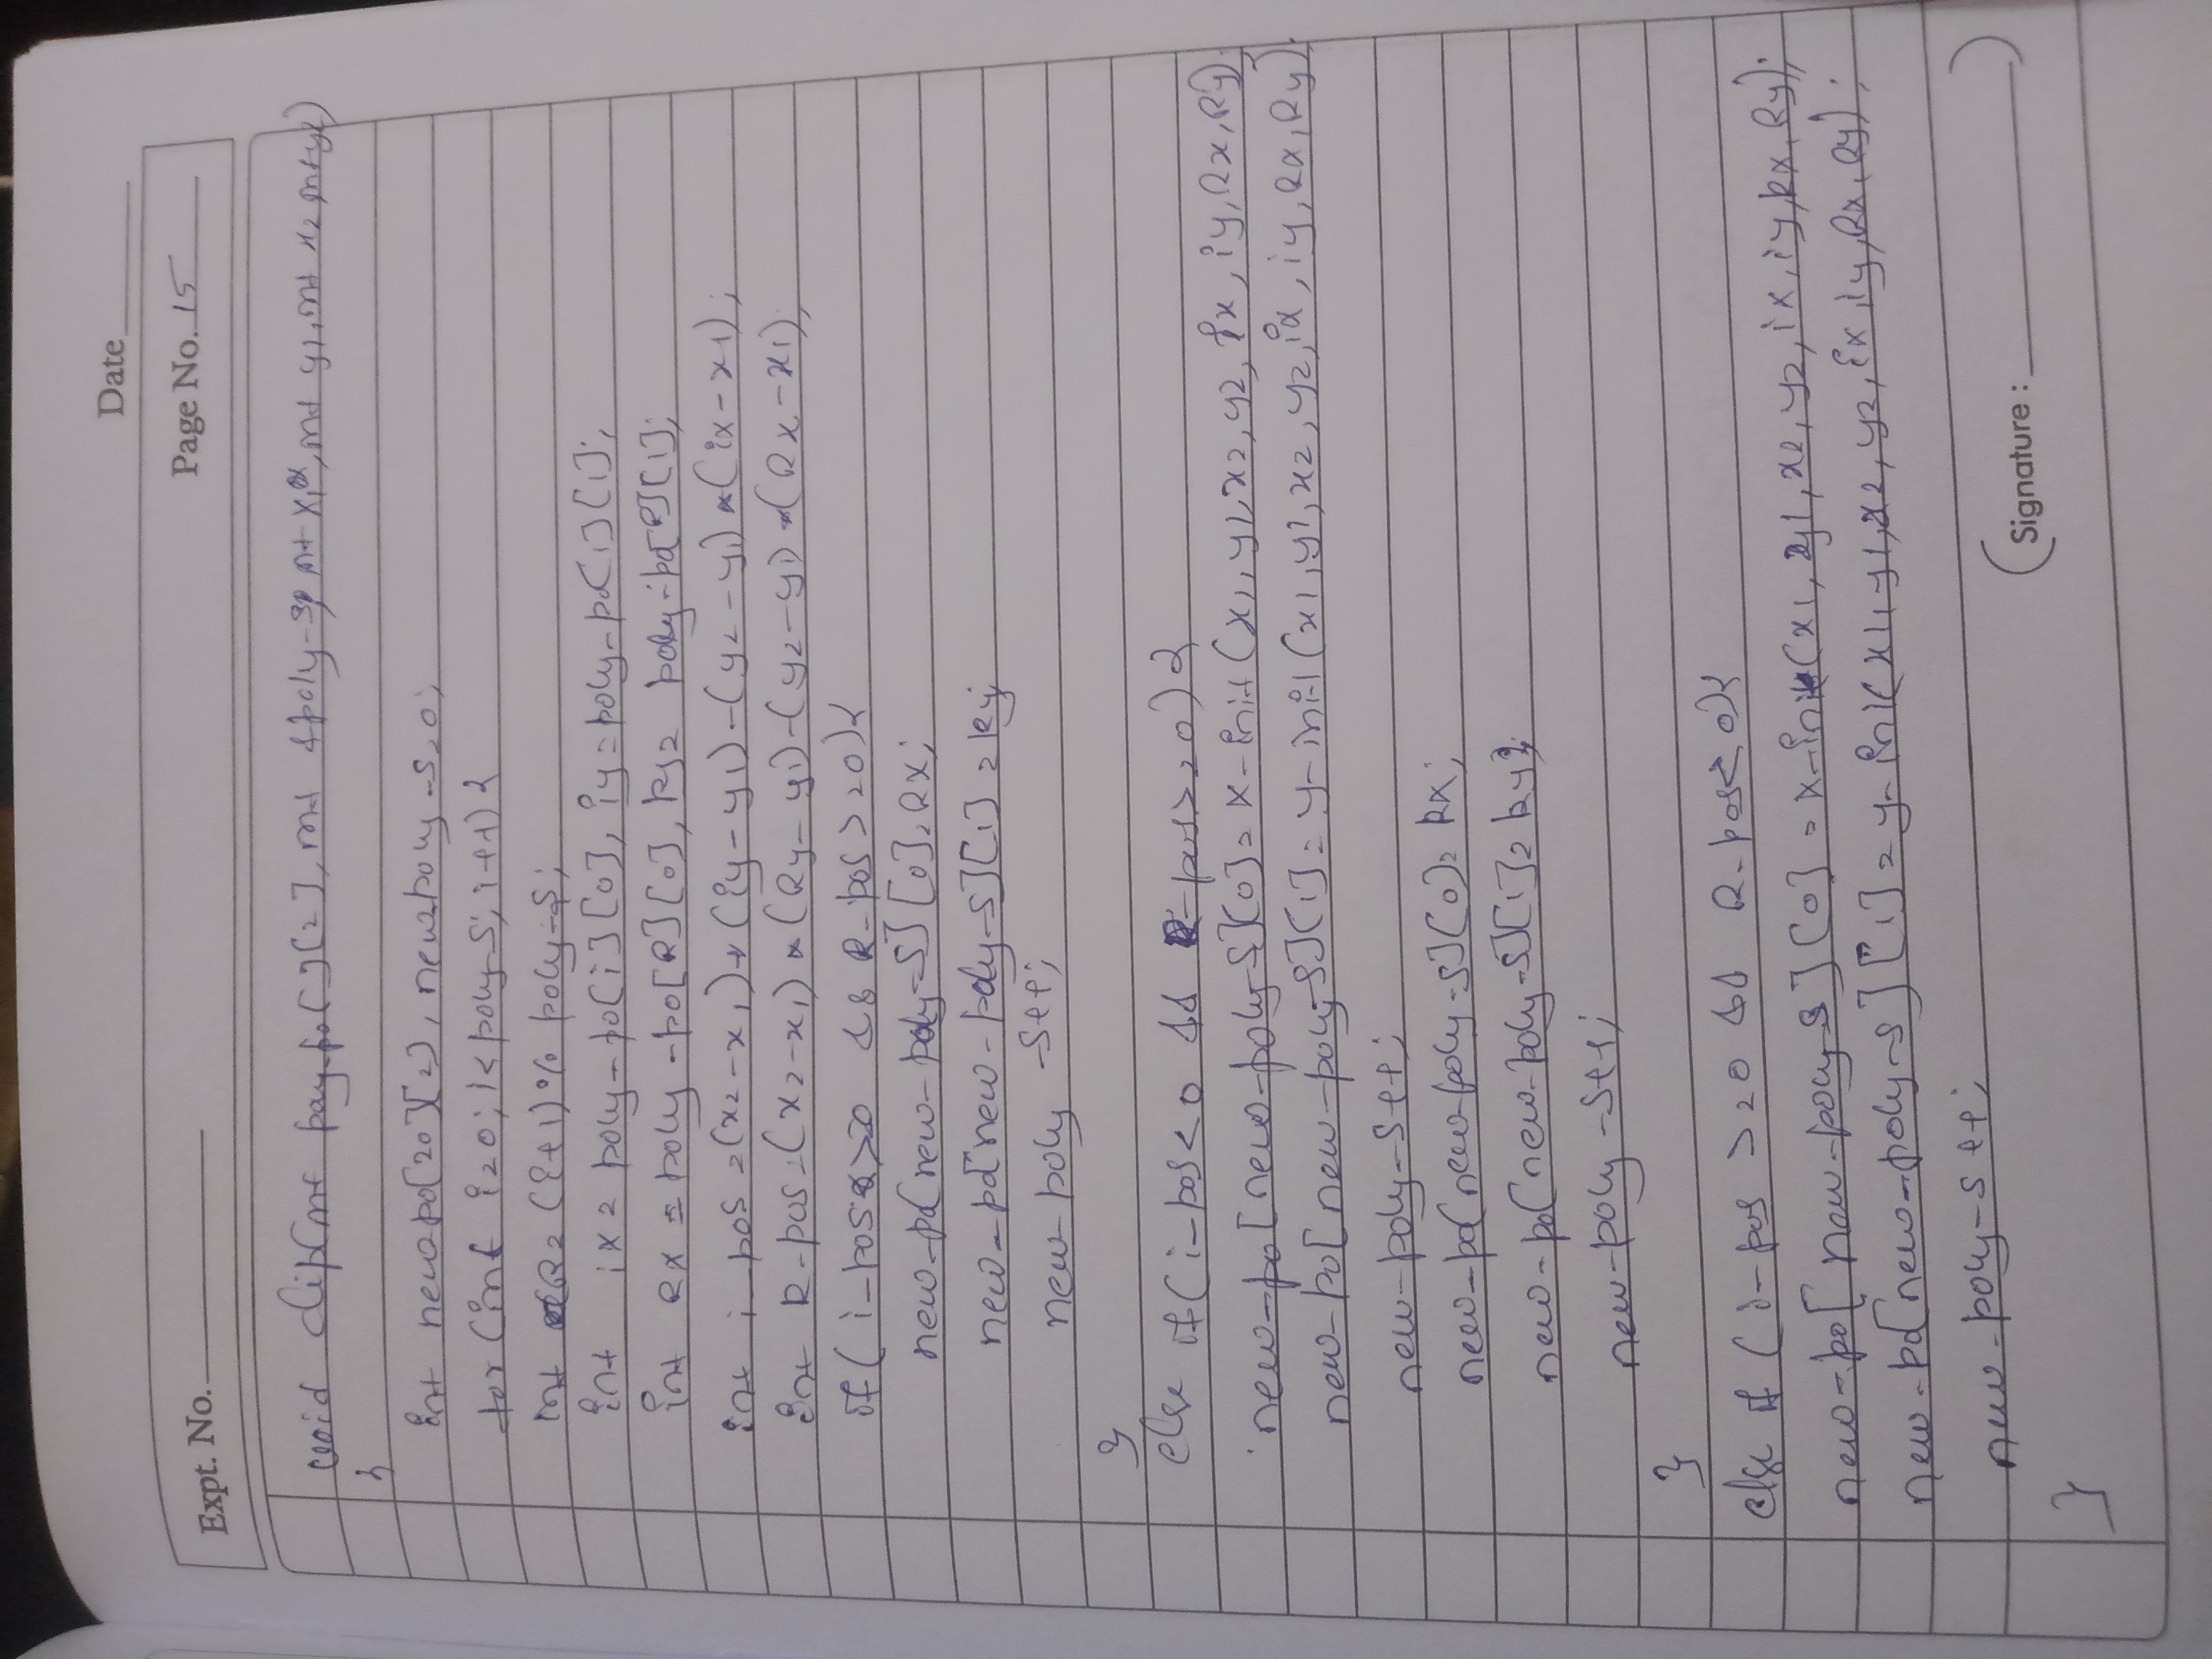 Date
Expt. No. Page No. 15
void clip(int poly-po[][2], int &poly-s, int x1, int y1, int x2, int y2)
{
int new-po[20][2], new-poly-s=0;
for (int i=0; i<poly-s; i++) {
int R=(i+1)% poly-s;
int ix = poly-po[i][0], iy = poly-po[i][1];
int Rx = poly-po[R][0], Ry = poly-po[R][1];
int i-pos =(x2-x1)*(iy-y1)-(y2-y1)*(ix-x1);
int R-pos=(x2-x1)*(Ry-y1)-(y2-y1)*(Rx-x1);
if (i-pos >=0 && R-pos >=0){
new-po[new-poly-s][0]=Rx;
new-po[new-poly-s][1]=Ry;
new-poly-s++;
}
else if (i-pos<0 && R-pos>=0) {
new-po[new-poly-s][0]= x-int (x1, y1, x2, y2, ix, iy, Rx, Ry);
new-po[new-poly-s][1]= y-int (x1, y1, x2, y2, ix, iy, Rx, Ry);
new-poly-s++;
new-po[new-poly-s][0]= Rx;
new-po[new-poly-s][1]= Ry;
new-poly-s++;
}
else if (i-pos >=0 && R-pos<0){
new-po[new-poly-s][0] = x-int(x1, y1, x2, y2, ix, iy, Rx, Ry);
new-po[new-poly-s][1] = y-int(x1, y1, x2, y2, ix, iy, Rx, Ry);
new-poly-s++;
}
(Signature : )